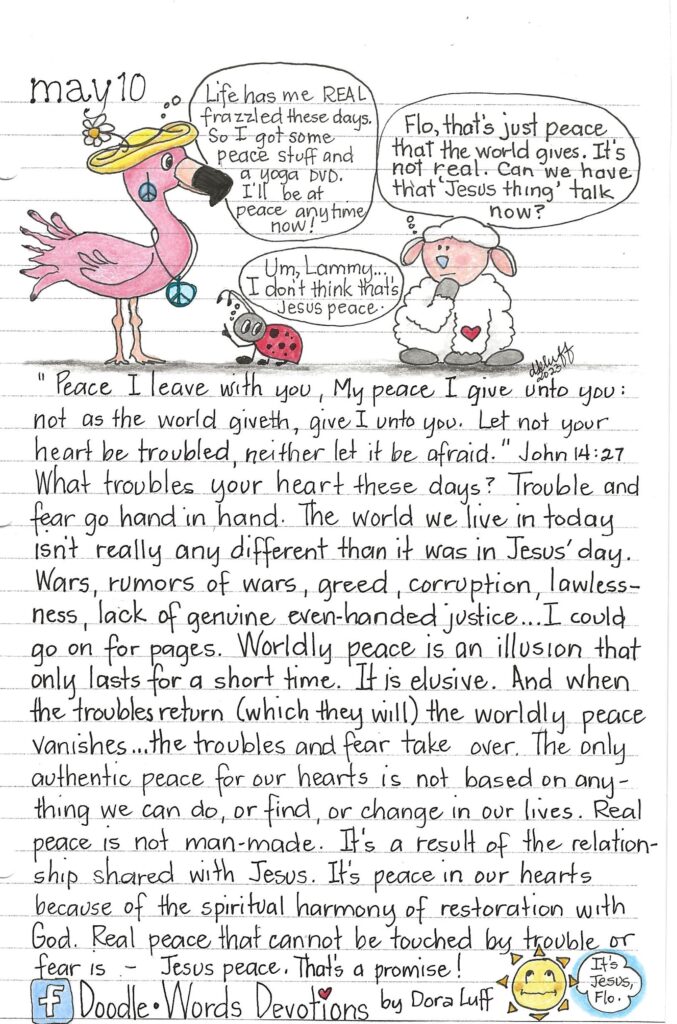 may 10
Life has me REAL
frazzled these days.
So I got some
peace stuff and
a yoga DVD.
I'll be at
peace anytime
now!
Flo, that's just peace
that the world gives. It's
not real. Can we have
that 'Jesus thing' talk
now?
Um, Lammy...
I don't think that's
Jesus peace.
dkluff
2023
"Peace I leave with you, My peace I give unto you:
not as the world giveth, give I unto you. Let not your
heart be troubled, neither let it be afraid." John 14:27
What troubles your heart these days? Trouble and
fear go hand in hand. The world we live in today
isn't really any different than it was in Jesus' day.
Wars, rumors of wars, greed, corruption, lawless-
ness, lack of genuine even-handed justice...I could
go on for pages. Worldly peace is an illusion that
only lasts for a short time. It is elusive. And when
the troubles return (which they will) the worldly peace
vanishes...the troubles and fear take over. The only
authentic peace for our hearts is not based on any-
thing we can do, or find, or change in our lives. Real
peace is not man-made. It's a result of the relation-
ship shared with Jesus. It's peace in our hearts
because of the spiritual harmony of restoration with
God. Real peace that cannot be touched by trouble or
fear is - Jesus peace. That's a promise!
f Doodle•Words Devotions by Dora Luff
It's
Jesus,
Flo.